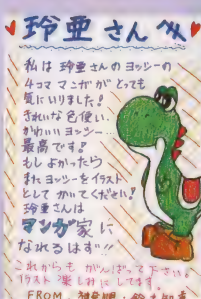 玲亜さんへ
私は玲亜さんのヨッシーの
4コママンガがとっても
気にいりました!
きれいな色使い、
かわいいヨッシー…
最高です!
もしよかったら
またヨッシーをイラスト
としてかいてください!
玲亜さんは
マンガ家に
なれるはず…!!
これからもがんばって下さい!
イラスト楽しみにしてます
FROM